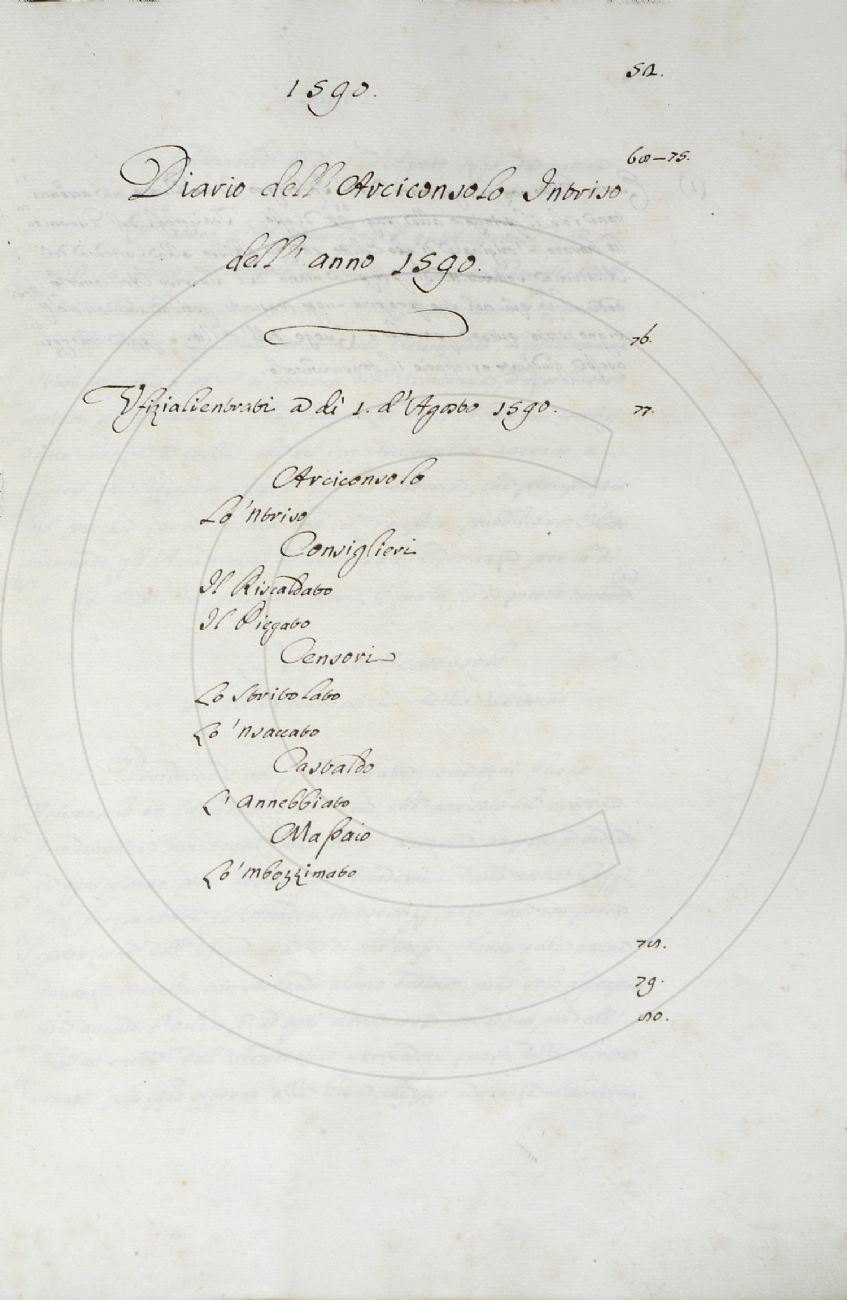 52.
1590.
68–75.
Diario dell'Arciconsolo Intriso
dell'anno 1590.
76.
Vfizialientrati a di 1. d'Agosto 1590.
77.
Arciconsolo
Lo 'ntriso
Consiglieri
Il Riscaldato
Il Piegato
Censori
Lo stritolato
Lo 'nsaccato
Castaldo
L'annebbiato
Maßaio
Lo 'mbozzimato
78.
79.
80.